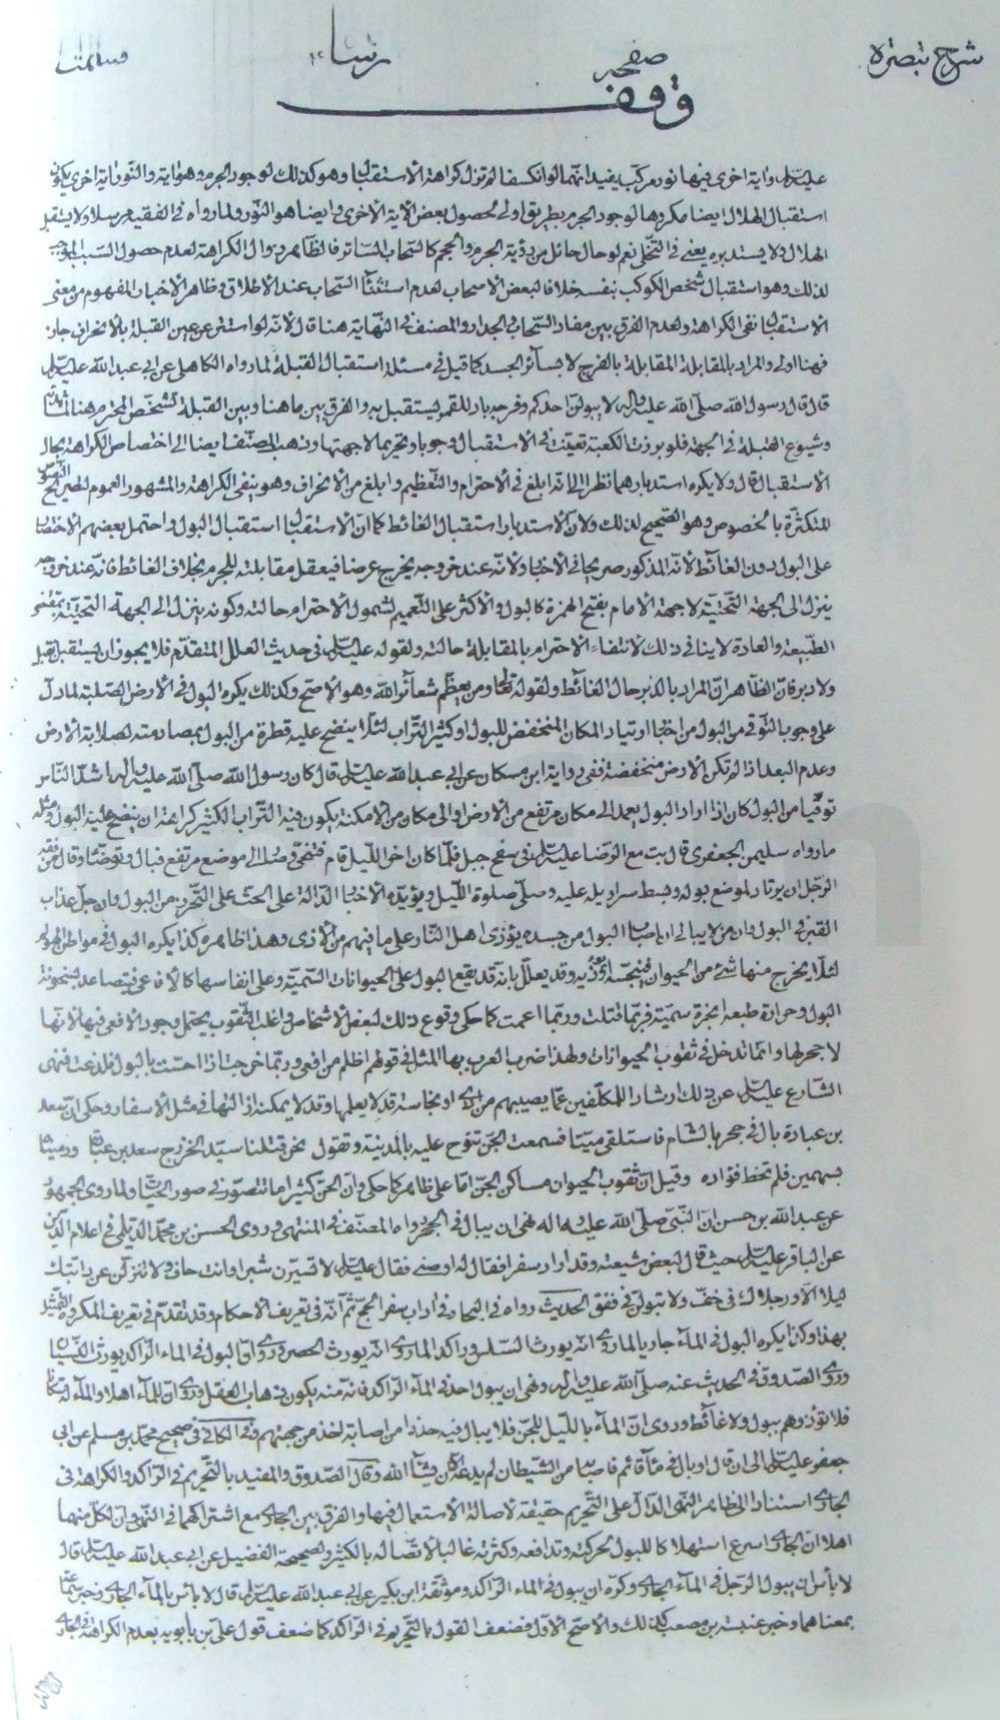 شرح تبصره
صفحه
وقف
عليه السلم رواية اخرى فيها نور مركب يفيد انهما لو انكسفا لم تزل كراهة الاستقبال وهو كذلك لوجود الجرم وهو اية والنور اية اخرى يكون
استقبال الهلال ايضا مكروها لوجود الجرم بطريق اولى لحصول بعض الاية الاخرى ايضا هو النور ولما رواه فى الفقيه مرسلا ولا يستقبل
الهلال ولا يستدبره يعنى فى التخلى نعم لو حال حائل من رؤية الجرم والحجم كالسحاب الساتر فالظاهر زوال الكراهة لعدم حصول السبب الموجب
لذلك وهو استقبال شخص الكوكب بنفسه خلافا لبعض الاصحاب لعدم استثناء السحاب عند الاطلاق وظاهر الاخبار المفهوم من معنى
الاستقبال نفى الكراهة ولعدم الفرق بين مفاد السحاب والجدار والمصنف فى النهاية هنا قال لانه لو استتر عن عين القبلة بالانحراف جاز
فهنا اولى والمراد بالمقابلة المقابلة بالفرج لا بسائر الجسد كما قيل فى مسئلة استقبال القبلة لما رواه الكاهلى عن ابى عبد الله عليه السلم
قال قال رسول الله صلى الله عليه واله لا يبولن احدكم وفرجه باد للقمر يستقبل به والفرق بين ما هنا وبين القبلة تشخص المحترم هنا
وشيوع القبلة فى الجهة فلو برزت الكعبة تعينت فى الاستقبال وجوبا وتحريما لا جهتها وذهب المصنف ايضا الى اختصاص الكراهة بحال
الاستقبال قال ولا يكره استدبارهما نظرا الى انه ابلغ فى الاحترام والتعظيم وابلغ من الانحراف وهو ينفى الكراهة والمشهور العموم لصريح النصوص
المتكثرة بالخصوص وهو الصحيح لذلك ولان الاستدبار استقبال الغائط كما ان الاستقبال استقبال البول واحتمل بعضهم الاختصاص
على البول دون الغائط لانه المذكور صريحا فى الاخبار ولانه عند خروجه يخرج عرضا فيعقل مقابلته للجرم بخلاف الغائط فانه عند خروجه
ينزل الى الجهة التحتية لا جهة الامام بفتح الهمزة كالبول والاكثر على التعميم لشمول الاحترام حالته وكونه ينزل الى الجهة التحتية بمقتضى
الطبيعة والعادة لا ينافى ذلك لانتفاء الاحترام بالمقابلة حالته ولقوله عليه السلم فى حديث العلل المتقدم فلا يجوز ان يستقبل بقبل
ولا دبر فان الظاهر ان المراد بالدبر حال الغائط ولقوله تعالى ومن يعظم شعائر الله وهو الاصح وكذلك يكره البول فى الارض الصلبة لما دل
على وجوب التوقى من البول من اخبار ارتياد المكان المنخفض للبول او كثير التراب لئلا ينضح عليه قطرة من البول بمصادمته لصلابة الارض
وعدم البعد اذا لم تكن الارض منخفضة ففى رواية ابن مسكان عن ابى عبد الله عليه السلم قال كان رسول الله صلى الله عليه واله اشد الناس
توقيا من البول كان اذا اراد البول يعمد الى مكان مرتفع من الارض او الى مكان من الامكنة يكون فيه التراب الكثير كراهة ان ينضح عليه البول ومثله
ما رواه سليمن الجعفرى قال بت مع الرضا عليه السلم فى سفح جبل فلما كان اخر الليل قام فتنحى وصار الى موضع مرتفع فبال وتوضأ وقال من فقه
الرجل ان يرتاد لموضع بوله وبسط سراويله عليه وصلى صلوة الليل ويؤيده الاخبار الدالة على الحث على التحرز من البول وان جل عذاب
القبر فى البول وان من لا يبالى اين اصاب البول من جسده يؤذى اهل النار على ما فيهم من الاذى وهذا ظاهر وكذا يكره البول فى مواطن الهوام
لئلا يخرج منها شئ من الحيوان فينجسه او يؤذيه وقد يعلل بانه قد يقع البول على الحيوانات السمية وعلى انفاسها كالافاعى فيتصاعد بسخونة
البول وحرارة طبعه ابخرة سمية فربما قتلت وربما اعمت كما حكى وقوع ذلك لبعض الاشخاص واغلب الثقوب يحتمل وجود الافعى فيها لانها
لا جحر لها وانما تدخل فى ثقوب الحيوانات ولهذا ضرب العرب بها المثل فى قولهم اظلم من افعى وربما خرجت اذا احست بالبول فلدغت فنهى
الشارع عليه السلم عن ذلك ارشادا للمكلفين عما يصيبهم من اذى او نجاسة قد لا يعلمها وقد لا يمكنه ازالتها فى مثل الاسفار وحكى ان سعد
بن عبادة بال فى جحر بالشام فاستلقى ميتا فسمعت الجن تنوح عليه بالمدينة وتقول نحن قتلنا سيد الخزرج سعد بن عبادة ورميناه
بسهمين فلم تخط فؤاده وقيل ان ثقوب الحيوان مساكن الجن اما على ظاهر كما حكى وان الجن كثيرا ما تتصور فى صور الحيات ولما روى الجمهور
عن عبد الله بن حسن ان النبى صلى الله عليه واله نهى ان يبال فى الجحر رواه المصنف فى المنتهى وروى الحسن بن محمد الديلمى فى اعلام الدين
عن الباقر عليه السلم حيث قال لبعض شيعته وقد اراد سفرا فقال له اوصنى فقال عليه السلم لا تسيرن شبرا وانت حاف ولا تنزلن عن دابتك
ليلا الا ورجلاك فى خف ولا تبولن فى نفق الحديث رواه فى البحار فى اداب سفر الحج ثم انه فى تعريف الاحكام وقد تقدم فى تعريف المكروه التمثيل
بهذا وكذا يكره البول فى الماء جاريا لما روى انه يورث السلس وراكدا لما روى انه يورث الحصر وروى ان البول فى الماء الراكد يورث النسيان
وروى الصدوق فى الحديث عنه صلى الله عليه واله ونهى ان يبول احد فى الماء الراكد فانه منه يكون ذهاب العقل وروى ان للماء اهلا والماء له سكان
فلا تؤذوهم ببول ولا غائط وروى ان الماء بالليل للجن فلا يبال فيه حذرا من اصابة اخذ من جهتهم وفى الكافى فى صحيح محمد بن مسلم عن ابى
جعفر عليه السلم الى ان قال او بال فى ماء قائم فاصابه من الشيطان لم يدعه الا ان يشاء الله وقال الصدوق والمفيد بالتحريم فى الراكد والكراهة فى
الجارى استنادا الى ظاهر النهى الدال على التحريم حقيقة لاصالة الاستعمال فيها والفرق بين الجارى مع اشتراكهما فى النهى وان لكل منهما
اهلا ان الجارى اسرع استهلاكا للبول لحركته وتدافعه وكثرته غالبا لاتصاله بالكثير ولصحيحة الفضيل عن ابى عبد الله عليه السلم قال
لا باس ان يبول الرجل فى الماء الجارى وكره ان يبول فى الماء الراكد وموثقة ابن بكير عن ابى عبد الله عليه السلم قال لا باس بالماء الجارى وخبر سماعة
بمعناهما وخبر عنبسة بن مصعب كذلك والاصح الاول فضعف القول بالتحريم فى الراكد كما ضعف قول على بن بابويه بعدم الكراهة فى الجارى